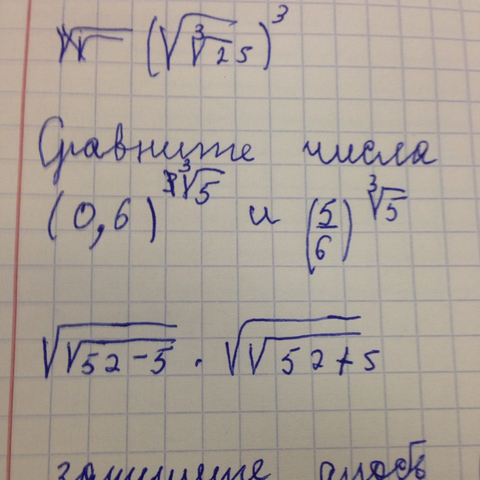 (√∛25)³
Сравните числа
(0,6)^∛5 и (5/6)^∛5
√(√52-5) · √(√52+5)